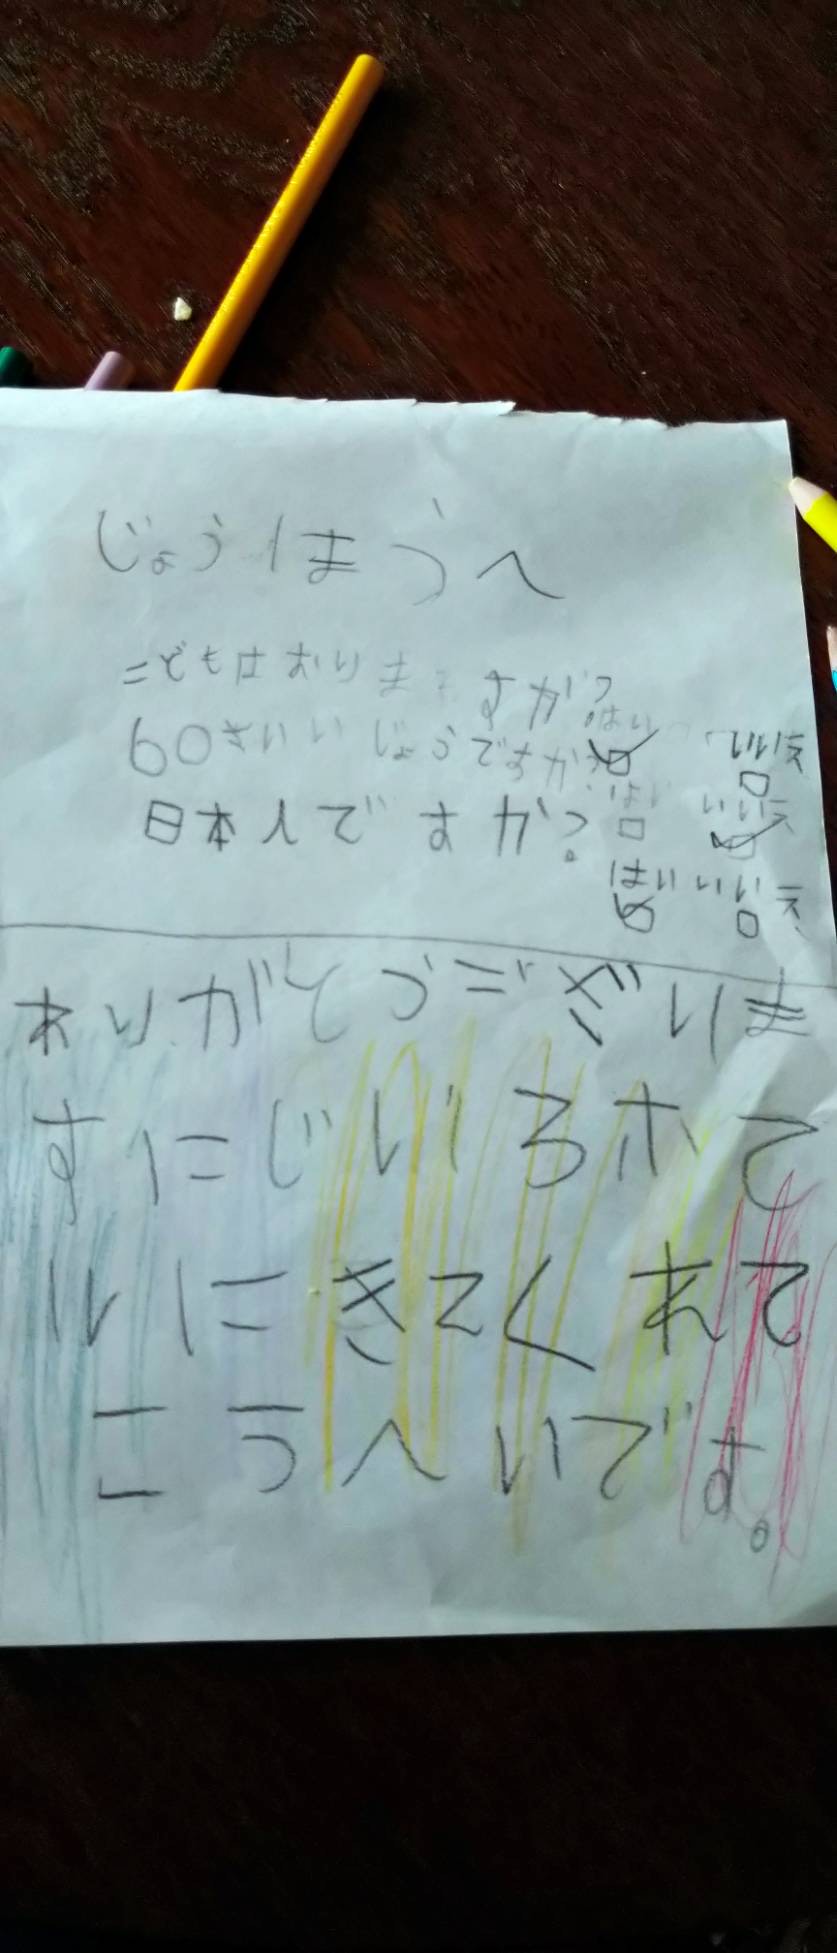 じょうほうへ
こどもはおりますか?
はい いいえ
60さいいじょうですか?
はい いいえ
日本人ですか?
はい いいえ
ありがとうござりま
すにじいろホて
ルにきてくれて
こうへいです。